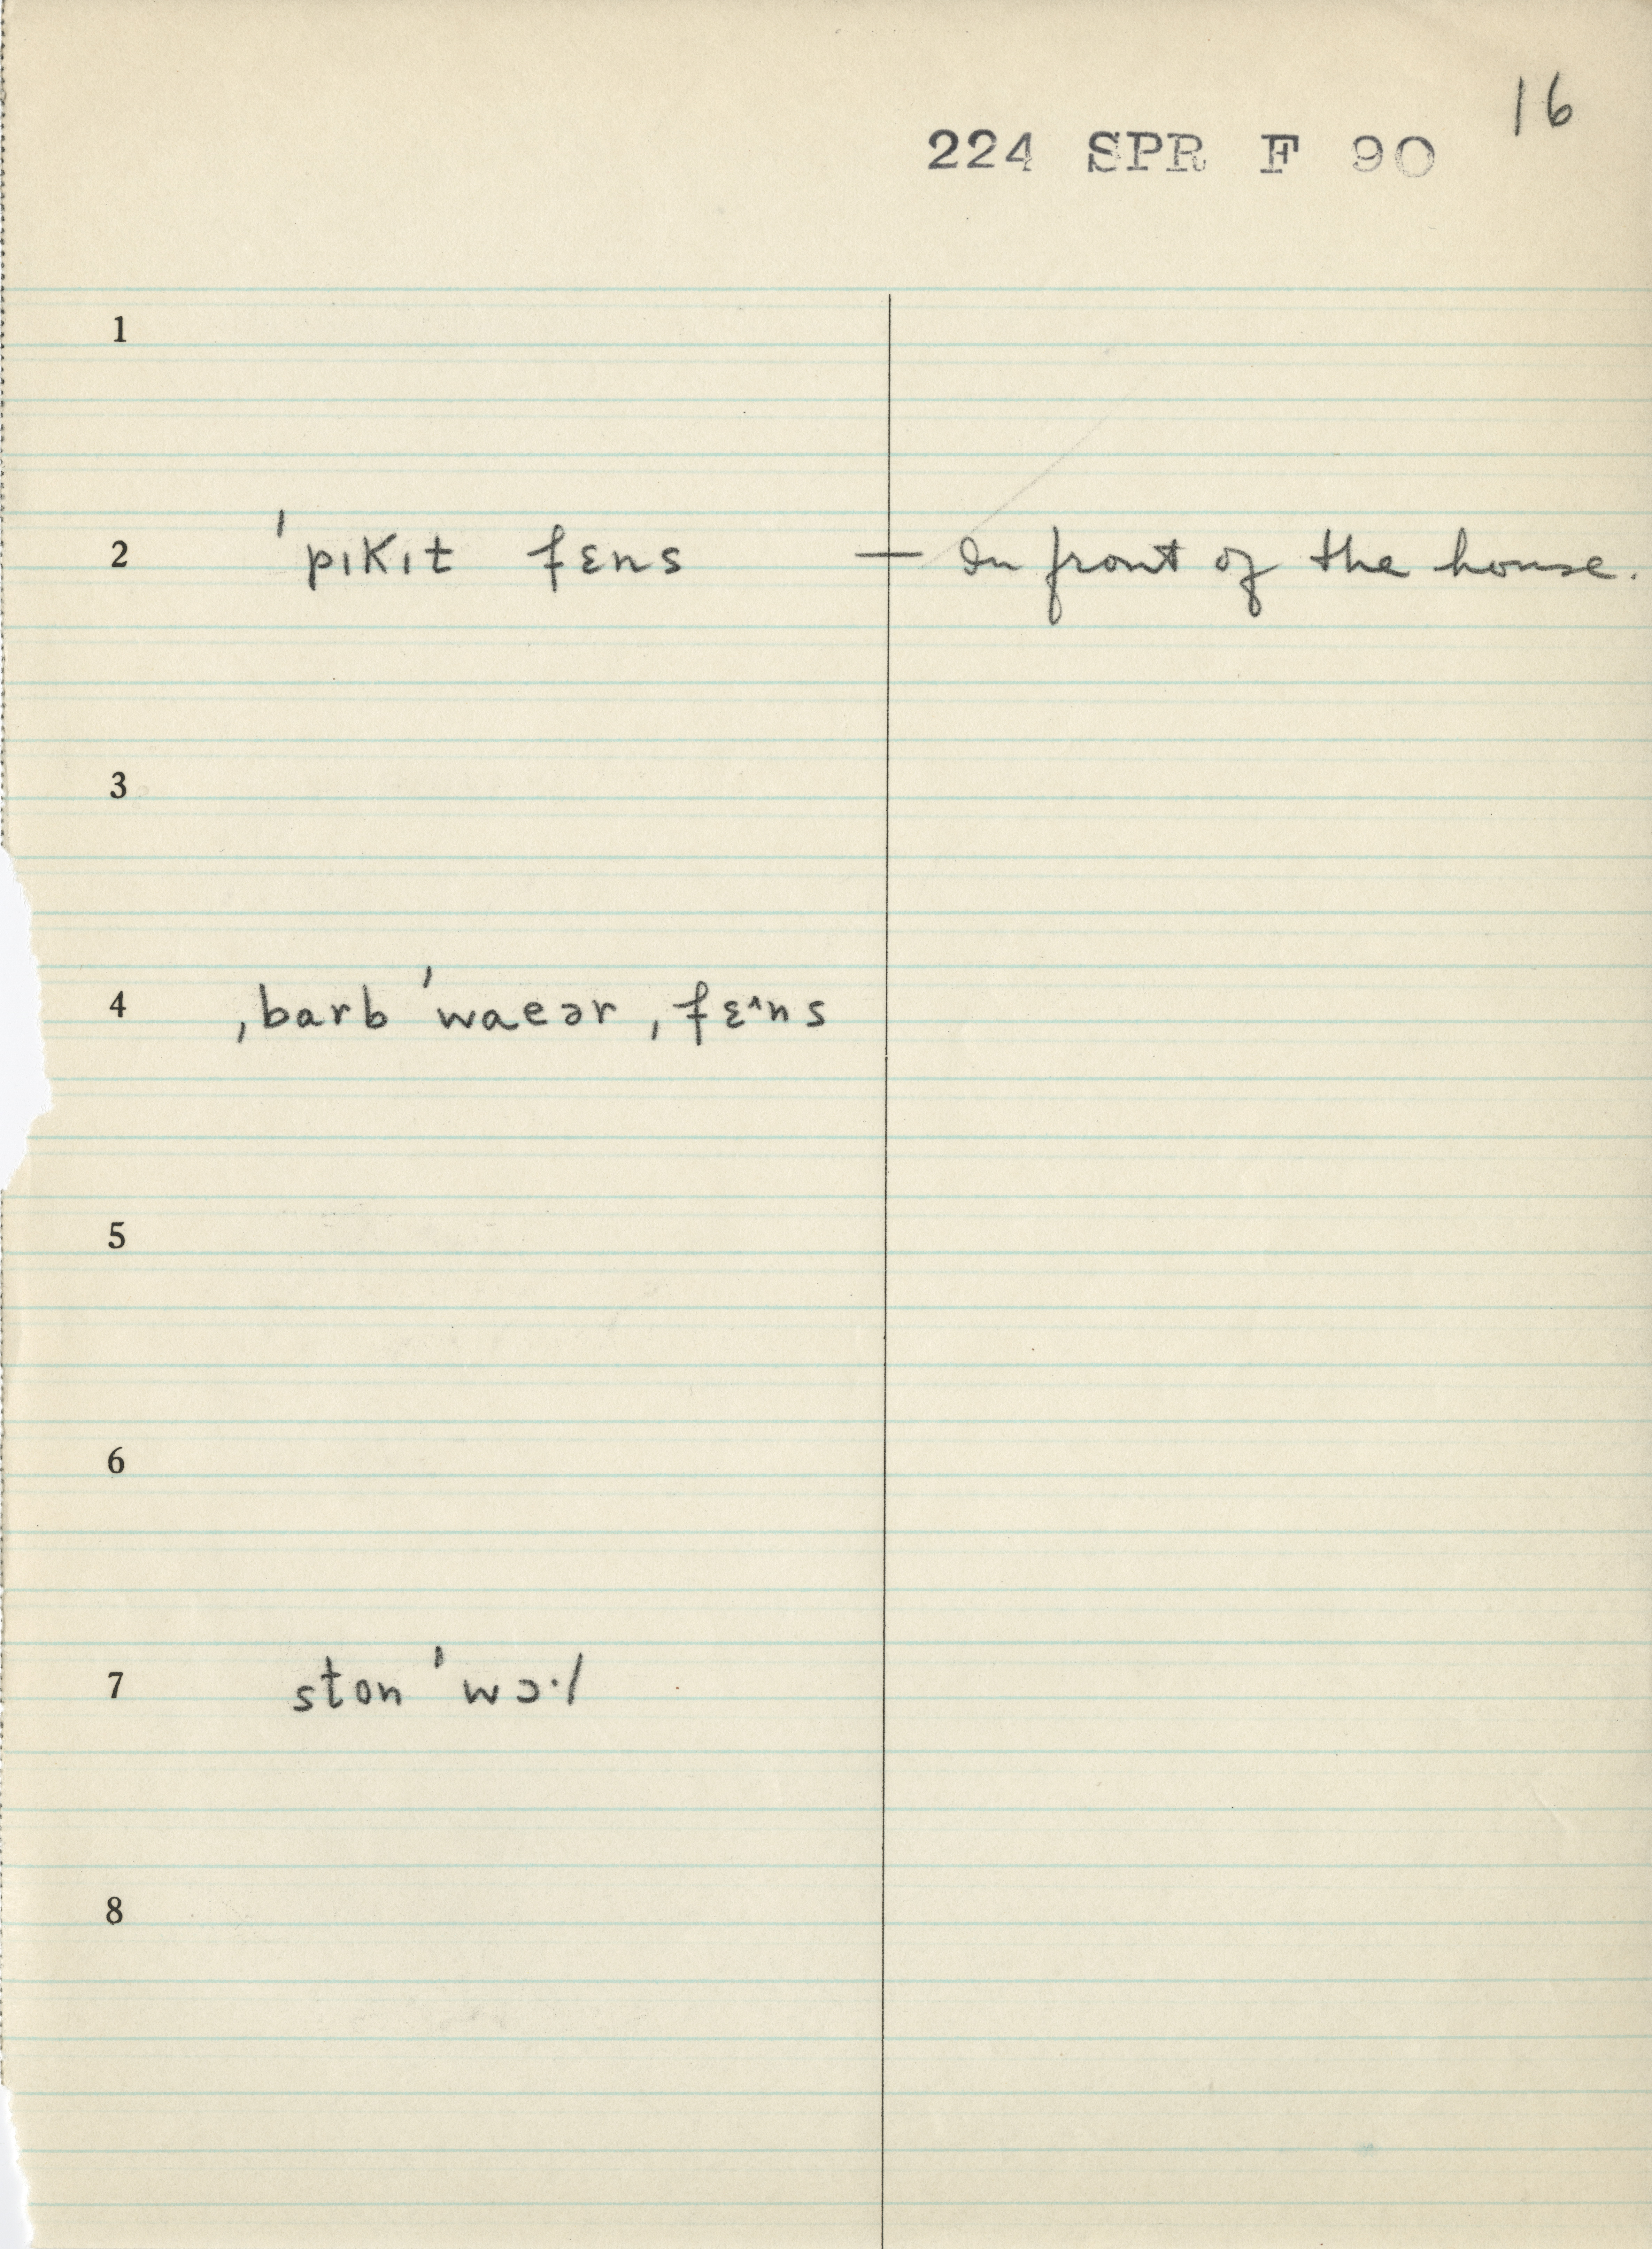 16
224 SPR F 90
1
2 ˈpɪkɪt fɛns — In front of the house.
3
4 ˌbarb ˈwaeər ˌfɛ^ns
5
6
7 ston ˈwɔ·l
8